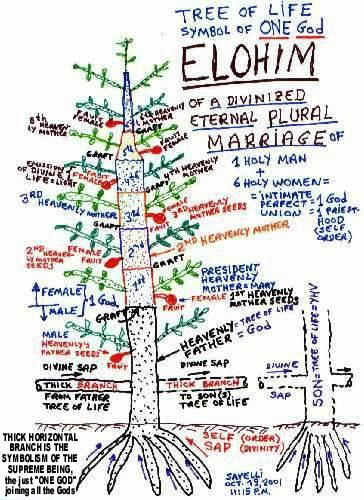 TREE OF LIFE
SYMBOL OF ONE God
ELOHIM
OF A DIVINIZED
ETERNAL PLURAL
MARRIAGE OF
1 HOLY MAN
+
6 HOLY WOMEN=
=INTIMATE
PERFECT=1 God
UNION =1 PRIEST-
HOOD
(SELF
ORDER)
FRUIT
FEMALE
6TH HEAVENLY
MOTHER
GRAFT
5TH
HEAVEN-
LY MOTHER
FRUIT
FEMALE
GRAFT
EMISSION
OF DIVINE
LIFE=LIGHT
FRUIT
FEMALE
4TH
4TH HEAVENLY
MOTHER
GRAFT
3RD
HEAVENLY MOTHER
3RD
FEMALE
FRUIT
3RD HEAVENLY
MOTHER SEEDS
GRAFT
2ND
HEAVEN-
LY MOTHER
SEEDS
FEMALE
FRUIT
2ND
2ND HEAVENLY
MOTHER
GRAFT
1ST
PRESIDENT
HEAVENLY
MOTHER=MARY
FEMALE
FRUIT
1ST HEAVENLY
MOTHER SEEDS
FEMALE
MALE
1 God
GRAFT
HEAVENLY=TREE OF LIFE
FATHER = God
MALE
HEAVENLY
FATHER SEEDS
FRUIT
DIVINE SAP
DIVINE SAP
THICK BRANCH
THICK BRANCH
FROM FATHER
TREE OF LIFE
TO SON(S)
TREE OF LIFE
DIVINE
SAP
SON=TREE OF LIFE=YHV
THICK HORIZONTAL
BRANCH IS THE
SYMBOLISM OF THE
SUPREME BEING,
the just "ONE GOD"
joining all the Gods
SELF (ORDER)
SAP (DIVINITY)
SAVELLI
OCT. 19, 2001
1:15 P.M.